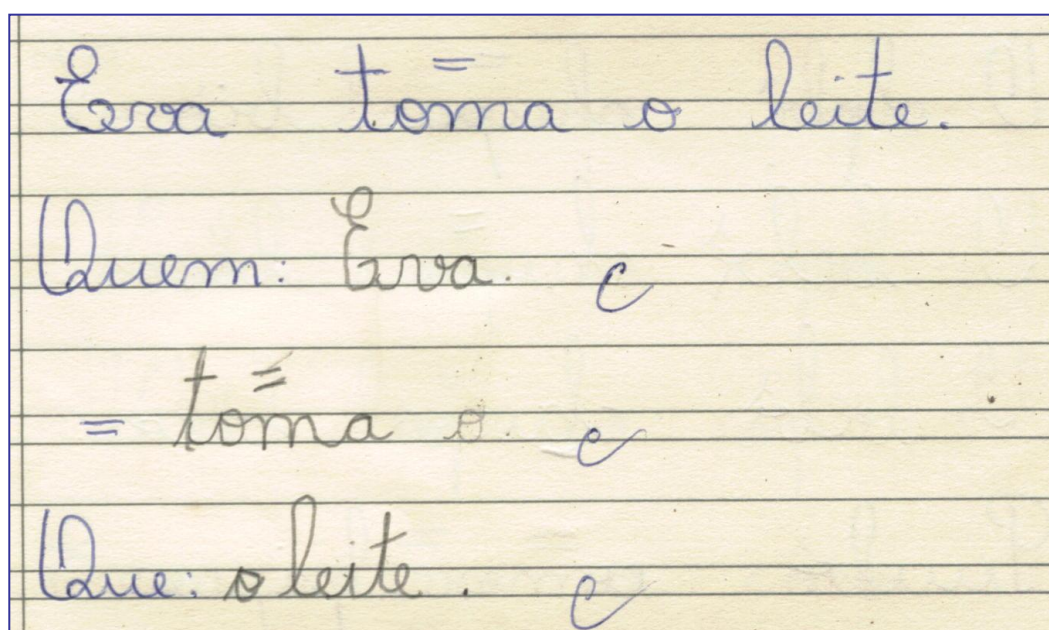 Eva toma o leite.
Quem: Eva. c
= toma o. c
Que: o leite. c